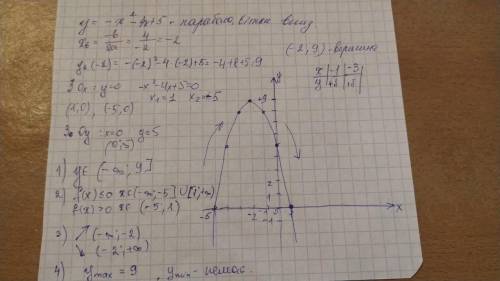 y = -x² - 4x + 5 - парабола, вітки вниз
x₀ = -b/2a = 4/-2 = -2
y₀(-2) = -(-2)² - 4·(-2) + 5 = -4 + 8 + 5 = 9
(-2; 9) - вершина
x | -1 | -3
y | +8 | +8
Ox: y=0 -x²-4x+5=0
x₁=1 x₂=-5
(1,0), (-5,0)
Oy: x=0 y=5
(0;5)
1) y∈ (-∞; 9]
2) f(x) ≤ 0 x∈(-∞; -5] ∪ [1; +∞)
f(x) > 0 x∈ (-5; 1)
3) ↗ (-∞; -2)
↘ (-2; +∞)
4) y max = 9, y min - немає.
y
9
2
1
-5 -2 -1
-1
x